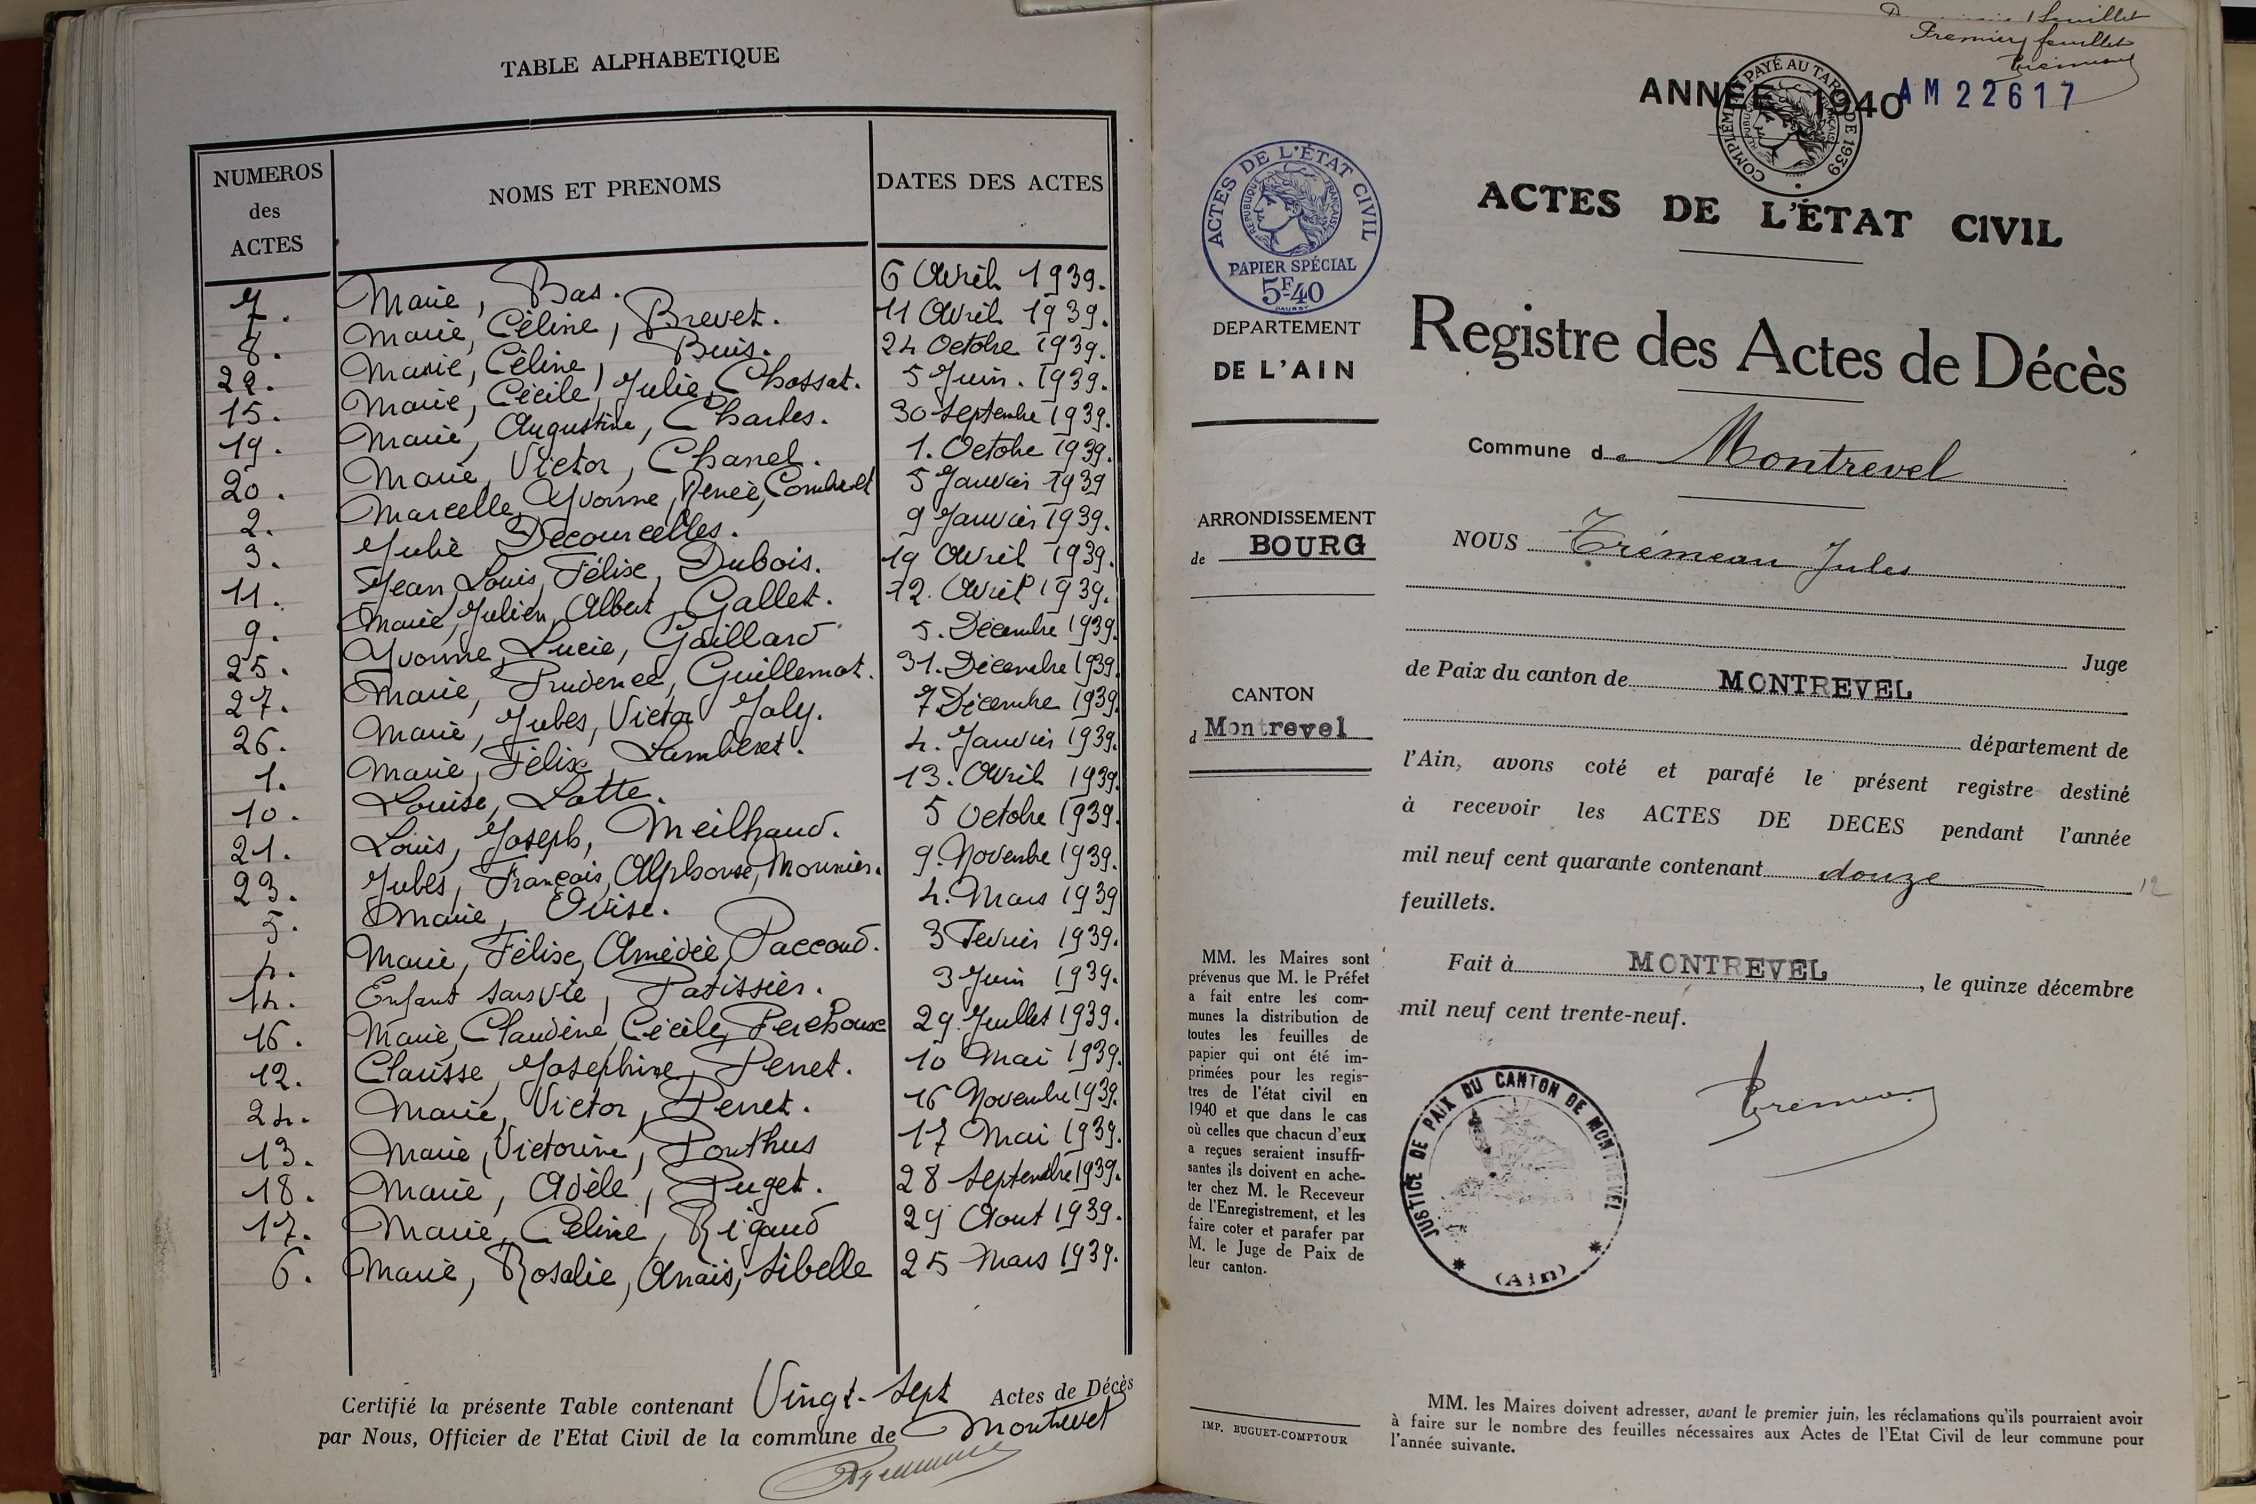 TABLE ALPHABETIQUE
NUMEROS des ACTES NOMS ET PRENOMS DATES DES ACTES
7. Marie, Bas. 6 Avril 1939.
8. Marie, Céline, Brevet. 11 Avril 1939.
22. Marie, Céline, Buis. 24 Octobre 1939.
15. Marie, Cécile, Julie, Chossat. 5 Juin. 1939.
19. Marie, Augustine, Charles. 30 Septembre 1939.
20. Marie, Victor, Chanel. 1. Octobre 1939.
2. Marcelle, Yvonne, Renée, Combret 5 Janvier 1939
3. Julie Decourcelles. 9 Janvier 1939.
11. Jean, Louis, Félix, Dubois. 19 Avril 1939.
9. Marie, Julien, Albert, Gallet. 12. Avril 1939.
25. Yvonne, Lucie, Gaillard 5. Décembre 1939.
27. Marie, Prudence, Guillemot. 31. Décembre 1939.
26. Marie, Jules, Victor Joly. 7 Décembre 1939.
1. Marie, Félix, Lamberet. 4. Janvier 1939.
10. Louise, Lotte. 13. Avril 1939.
21. Louis, Joseph, Meilhaud. 5 Octobre 1939.
23. Jules, François, Alphonse, Mounier. 9. Novembre 1939.
5. Marie, Ovise. 4. Mars 1939
4. Marie, Félise, Amédée, Paccoud. 3 Fevrier 1939.
14. Enfant sans vie, Patissier. 3 Juin 1939.
16. Marie, Claudine, Cécile, Perehoux 29. Juillet 1939.
12. Clarisse, Josephine, Perret. 10 Mai 1939.
24. Marie, Victor, Perret. 16 Novembre 1939.
13. Marie, Victorine, Ponthus 17 Mai 1939.
18. Marie, Adèle, Puget. 28 Septembre 1939.
17. Marie, Céline, Rigaud 29 Aout 1939.
6. Marie, Rosalie, Anaïs, Sibelle 25 Mars 1939.
Certifié la présente Table contenant Vingt-Sept Actes de Décès
par Nous, Officier de l'Etat Civil de la commune de Montrevel
Premier feuillet
ANNÉE 1940 AM22617
COMPLÉMENT PAYÉ AU TARIF DE 1939
RÉPUBLIQUE FRANÇAISE
ACTES DE L'ÉTAT CIVIL
RÉPUBLIQUE FRANÇAISE
PAPIER SPÉCIAL
5F40
DEPARTEMENT
DE L'AIN
ARRONDISSEMENT
de BOURG
CANTON
d Montrevel
MM. les Maires sont
prévenus que M. le Préfet
a fait entre les com-
munes la distribution de
toutes les feuilles de
papier qui ont été im-
primées pour les regis-
tres de l'état civil en
1940 et que dans le cas
où celles que chacun d'eux
a reçues seraient insuffi-
santes ils doivent en ache-
ter chez M. le Receveur
de l'Enregistrement, et les
faire coter et parafer par
M. le Juge de Paix de
leur canton.
IMP. BUGUET-COMPTOUR
ACTES DE L'ÉTAT CIVIL
Registre des Actes de Décès
Commune de Montrevel
NOUS Trémeau Jules
Juge
de Paix du canton de MONTREVEL
département de
l'Ain, avons coté et parafé le présent registre destiné
à recevoir les ACTES DE DECES pendant l'année
mil neuf cent quarante contenant douze 12
feuillets.
Fait à MONTREVEL, le quinze décembre
mil neuf cent trente-neuf.
JUSTICE DE PAIX DU CANTON DE MONTREVEL
(Ain)
MM. les Maires doivent adresser, avant le premier juin, les réclamations qu'ils pourraient avoir
à faire sur le nombre des feuilles nécessaires aux Actes de l'Etat Civil de leur commune pour
l'année suivante.